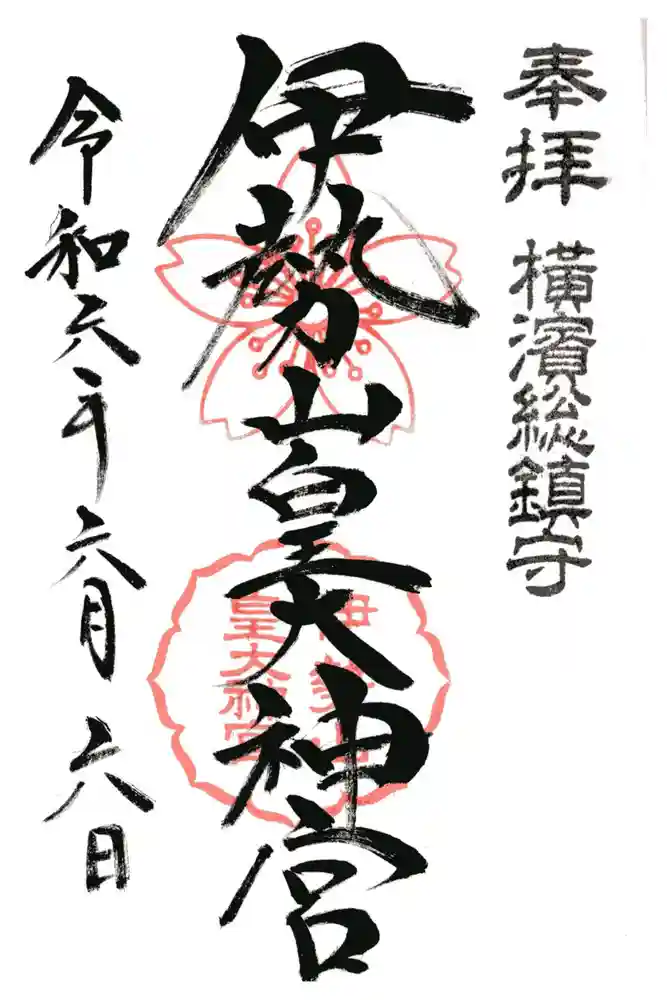 奉拝
横濱総鎮守
伊勢山皇大神宮
伊勢山
皇大神宮
令和六年六月六日